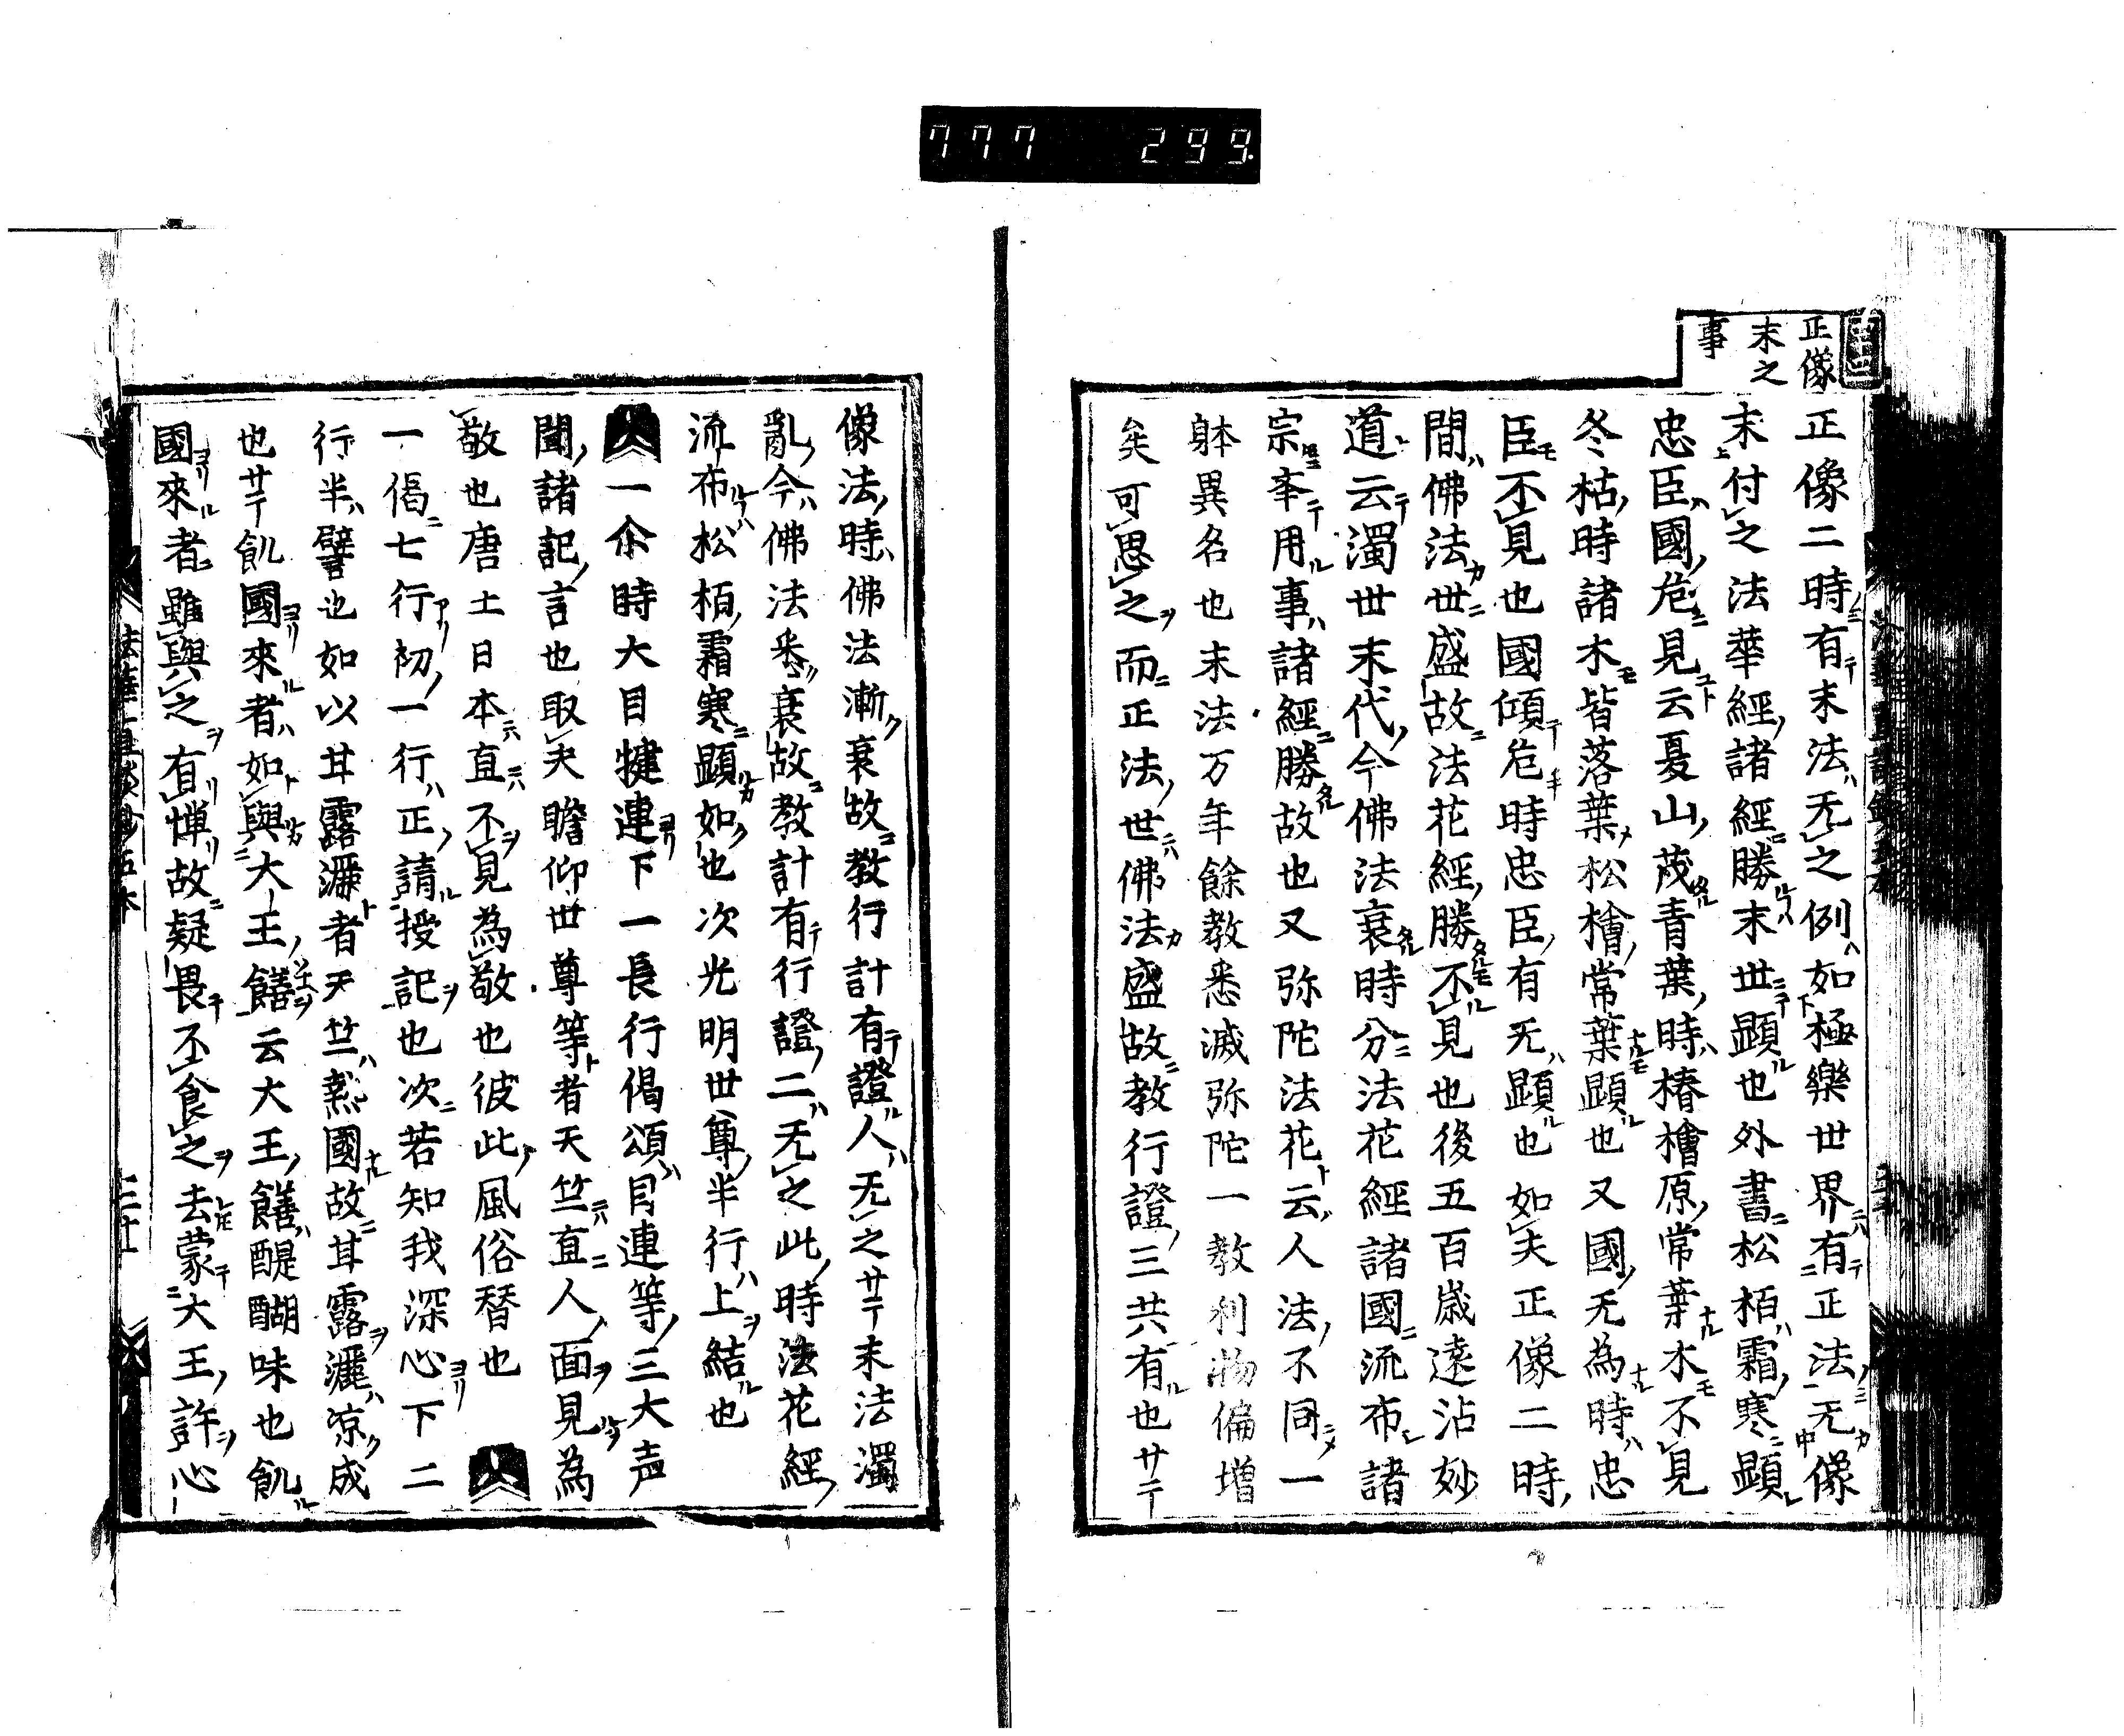 777 299.
正像
末之
事
正像二時有末法无之例如極樂世界有正法无像
末付之法華經諸經勝末世顕也外書松栢霜寒顕
忠臣國危見云憂山茂青葉時椿檜原常葉木不見
冬枯時諸木皆落葉松檜常葉顕也又國无為時忠
臣不見也國傾危時忠臣有无顕也如夫正像二時
間佛法世盛故法花經勝不見也後五百歳遠沾妙
道云濁世末代今佛法衰時分法花經諸國流布諸
宗奉用事諸經勝故也又弥陀法花云人法不同一
躰異名也末法万年餘教悉滅弥陀一教利物偏增
矣可思之而正法世佛法盛故教行證三共有也サテ
像法時佛法漸衰故教行計有證人无之サテ末法濁
亂今佛法悉衰故教計有行證二无之此時法花經
流布松栢霜寒顕如也次光明世尊半行上結也
一尒時大目犍連下一長行偈頌目連等三大声
聞諸記言也取夫瞻仰世尊等者天竺直人面見為
敬也唐土日本直不見為敬也彼此風俗替也
一偈七行初一行正請授記也次若知我深心下二
行半譬也如以甘露灑者天竺熱國故甘露灑凉成
也サテ飢國來者如與大王饍云大王饍醍醐味也飢
國來者雖與之有憚故疑畏不食之去蒙大王許心
法華直談鈔五本